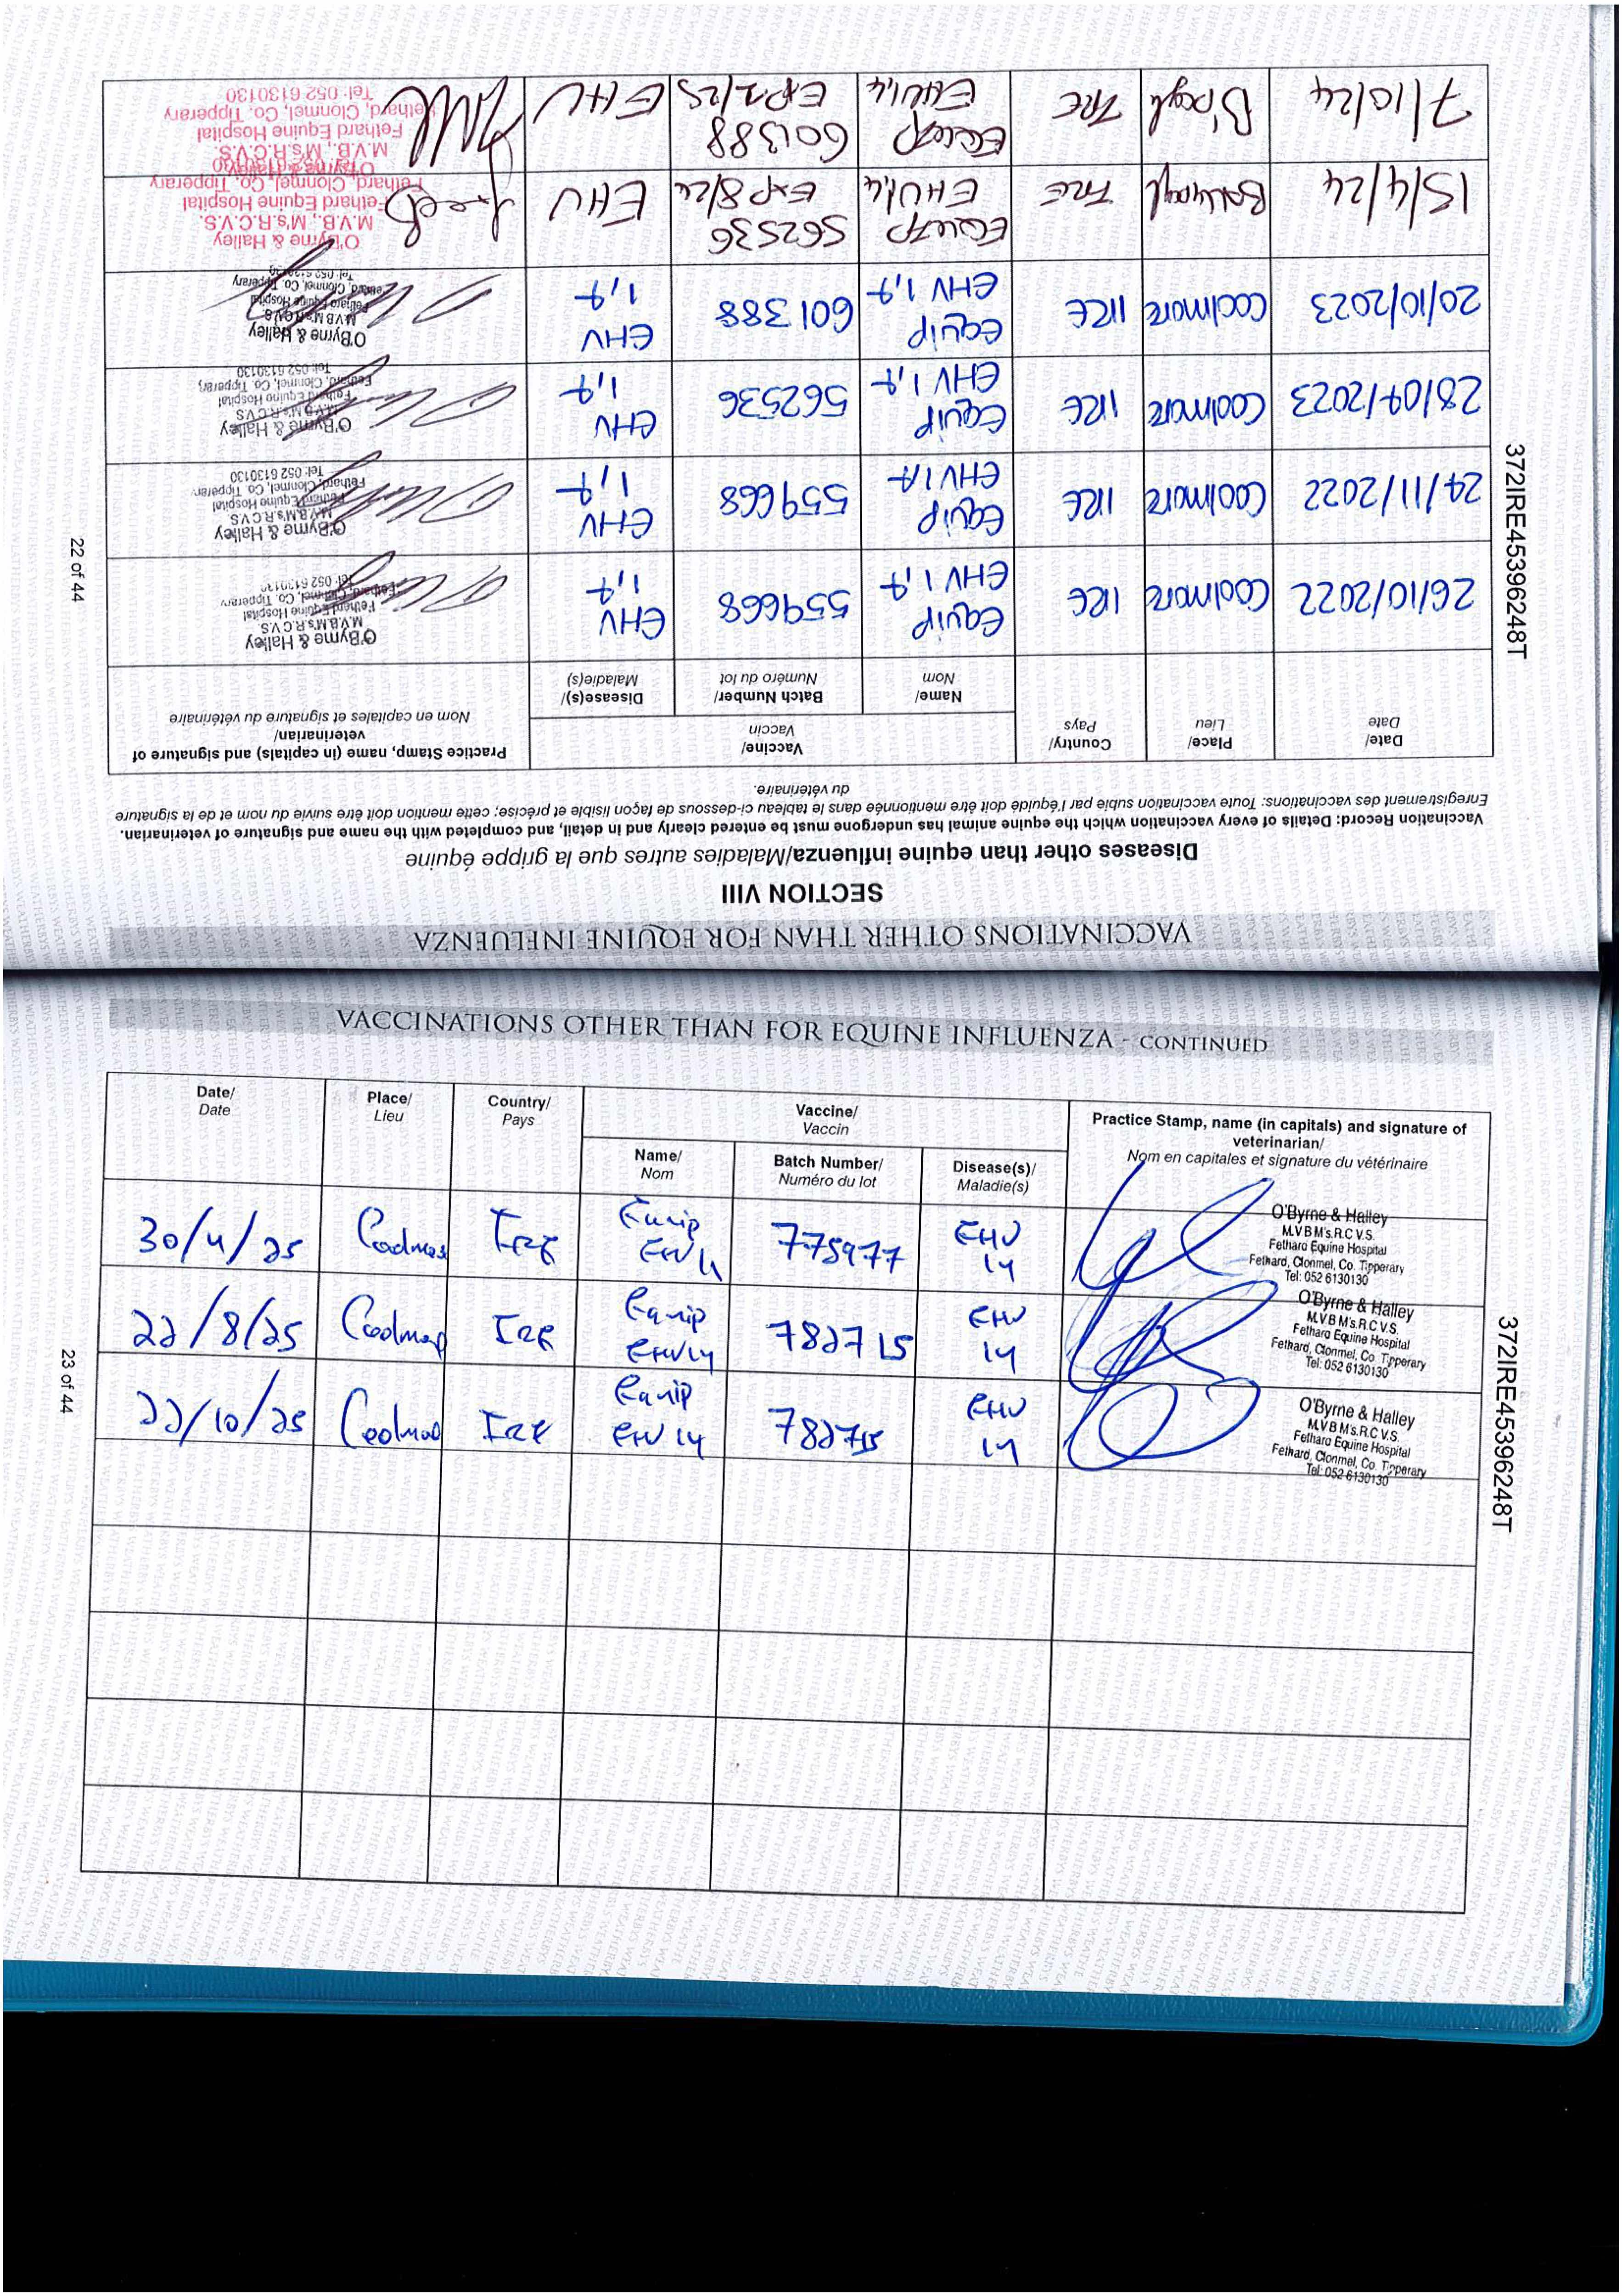 VACCINATIONS OTHER THAN FOR EQUINE INFLUENZA
SECTION VIII
Diseases other than equine influenza/Maladies autres que la grippe équine
Vaccination Record: Details of every vaccination which the equine animal has undergone must be entered clearly and in detail, and completed with the name and signature of veterinarian.
Enregistrement des vaccinations: Toute vaccination subie par l'équidé doit être mentionnée dans le tableau ci-dessous de façon lisible et précise; cette mention doit être suivie du nom et de la signature
du vétérinaire.
Date/ Date Place/ Lieu Country/ Pays Vaccine/ Vaccin Practice Stamp, name (in capitals) and signature of veterinarian/ Nom en capitales et signature du vétérinaire
Name/ Nom Batch Number/ Numéro du lot Disease(s)/ Maladie(s)
26/10/2022 Coolmore IRE Equip EHV 1,4 559668 EHV 1,4 O'Byrne & Halley M.V.B.M's.R.C.V.S. Fethard Equine Hospital Fethard, Clonmel, Co. Tipperary Tel: 052 6130130
24/11/2022 Coolmore IRE Equip EHV 1,4 559668 EHV 1,4 O'Byrne & Halley M.V.B.M's.R.C.V.S. Fethard Equine Hospital Fethard, Clonmel, Co. Tipperary Tel: 052 6130130
28/04/2023 Coolmore IRE Equip EHV 1,4 562536 EHV 1,4 O'Byrne & Halley M.V.B.M's.R.C.V.S. Fethard Equine Hospital Fethard, Clonmel, Co. Tipperary Tel: 052 6130130
20/10/2023 Coolmore IRE Equip EHV 1,4 601388 EHV 1,4 O'Byrne & Halley M.V.B.M's.R.C.V.S. Fethard Equine Hospital Fethard, Clonmel, Co. Tipperary Tel: 052 6130130
15/4/24 IRE EQUIP EHV1,4 562536 EXP 8/24 EHV O'Byrne & Halley M.V.B., M's.R.C.V.S. Fethard Equine Hospital Fethard, Clonmel, Co. Tipperary
7/10/24 IRE EQUIP EHV1,4 601388 EHV O'Byrne & Halley M.V.B., M's.R.C.V.S. Fethard Equine Hospital Fethard, Clonmel, Co. Tipperary Tel: 052 6130130
372IRE45396248T
22 of 44
VACCINATIONS OTHER THAN FOR EQUINE INFLUENZA - CONTINUED
Date/ Date Place/ Lieu Country/ Pays Vaccine/ Vaccin Practice Stamp, name (in capitals) and signature of veterinarian/ Nom en capitales et signature du vétérinaire
Name/ Nom Batch Number/ Numéro du lot Disease(s)/ Maladie(s)
30/4/25 IRE Equip EHV 775977 EHV 14 O'Byrne & Halley M.V.B M's.R.C.V.S. Fethard Equine Hospital Fethard, Clonmel, Co. Tipperary Tel: 052 6130130
22/8/25 IRE Equip EHV14 782715 EHV 14 O'Byrne & Halley M.V.B M's.R.C.V.S. Fethard Equine Hospital Fethard, Clonmel, Co. Tipperary Tel: 052 6130130
22/10/25 IRE Equip EHV 14 782715 EHV 14 O'Byrne & Halley M.V.B M's.R.C.V.S. Fethard Equine Hospital Fethard, Clonmel, Co. Tipperary Tel: 052 6130130
372IRE45396248T
23 of 44